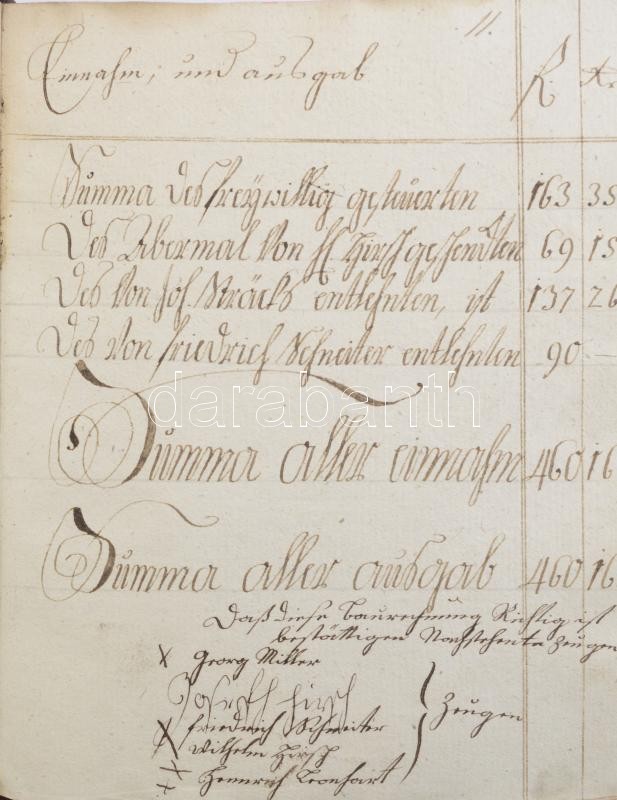 11.
Einnahm, und ausgab R. Kr
Summa des freÿwillig gesteuerten 163 35
Des Abermal Von H Hirsch geschenckten 69 15
Des Von Joh. Sträcks entlehnten, ist 137 26
Des Von friedrich Schneiter entlehnten 90
darabanth
Summa aller einnahm 460 16
Summa aller ausgab 460 16
Daß diese baurechnung Richtig ist
bestättigen Nachstehente Zeugen
X Georg Miller
Joseph hirsch
X friedrich Schneiter
X Wilhelm Hirsch
X Heinrich Leonhart
Zeugen